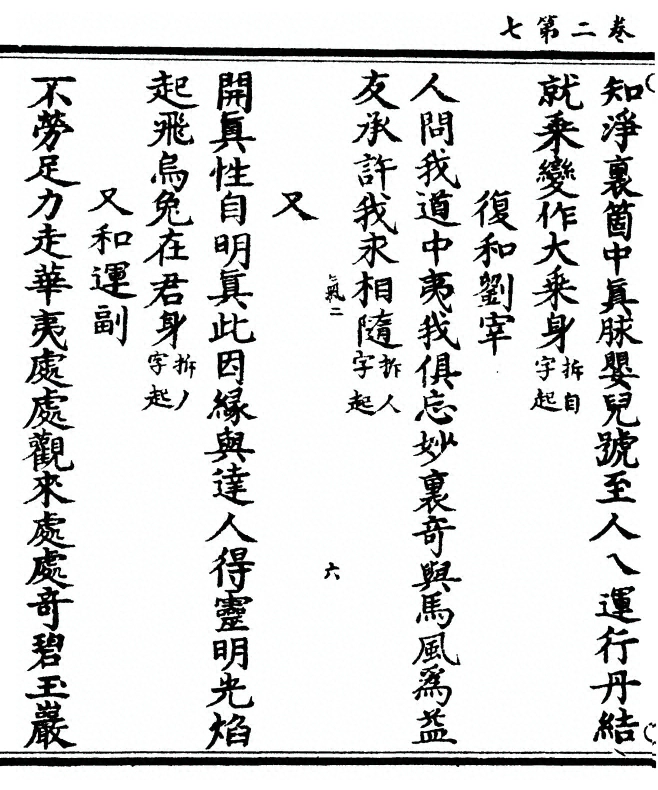 卷二第七
知淨裏箇中眞脉嬰兒號至人乀運行丹結
就乘變作大乘身拆自字起
復和劉宰
人問我道中夷我俱忘妙裏奇與馬風爲益
友承許我永相隨拆人字起
氣二
六
又
開眞性自明眞此因緣與達人得靈明光焰
起飛烏兔在君身拆丿字起
又和運副
不勞足力走華夷處處觀來處處奇碧玉巖